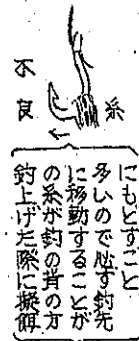 糸
不良
釣上げた際に擬餌
の糸が釣の背の方
に移動することが
多いので必ず釣先
にもとすごと